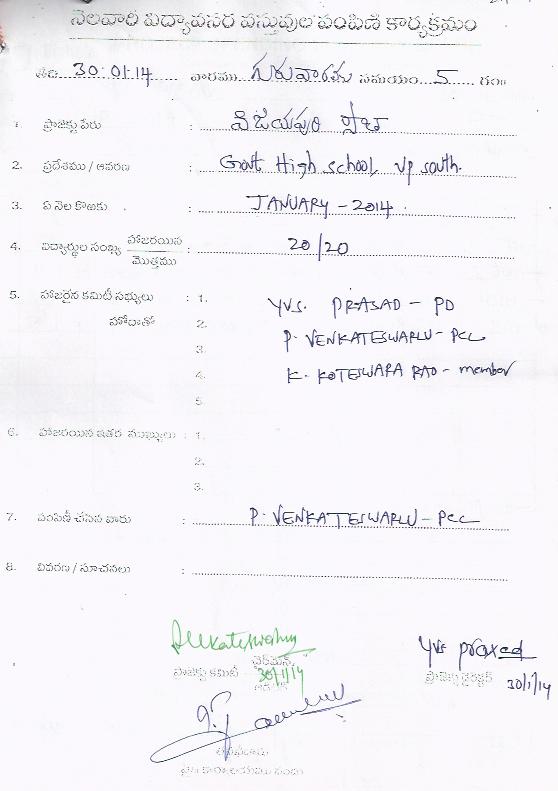 నెలవారి విద్యావసర వస్తువుల పంపిణి కార్యక్రమం
తేది 30.01.14 వారము గురువారము సమయం 5 గం॥
1. ప్రాజెక్టు పేరు : విజయపురి సౌత్
2. ప్రదేశము / ఆవరణ : Govt High school, vp south.
3. ఏ నెల కొఱకు : JANUARY - 2014
4. విద్యార్థుల సంఖ్య హాజరయిన / మొత్తము : 20/20
5. హాజరైన కమిటీ సభ్యులు : 1. YVS. PRASAD - PD
హోదాతో 2. P. VENKATESWARLU - PCC
3. K. KOTESWARA RAO - member
4.
5.
6. హాజరయిన ఇతర ముఖ్యులు : 1.
2.
3.
7. పంపిణీ చేసిన వారు : P. VENKATESWARLU - PCC
8. వివరణ / సూచనలు :
చైర్‌మెన్,
ప్రాజెక్టు కమిటీ 30/1/14
YVS prasad
ప్రాజెక్టు డైరెక్టర్ 30/1/14